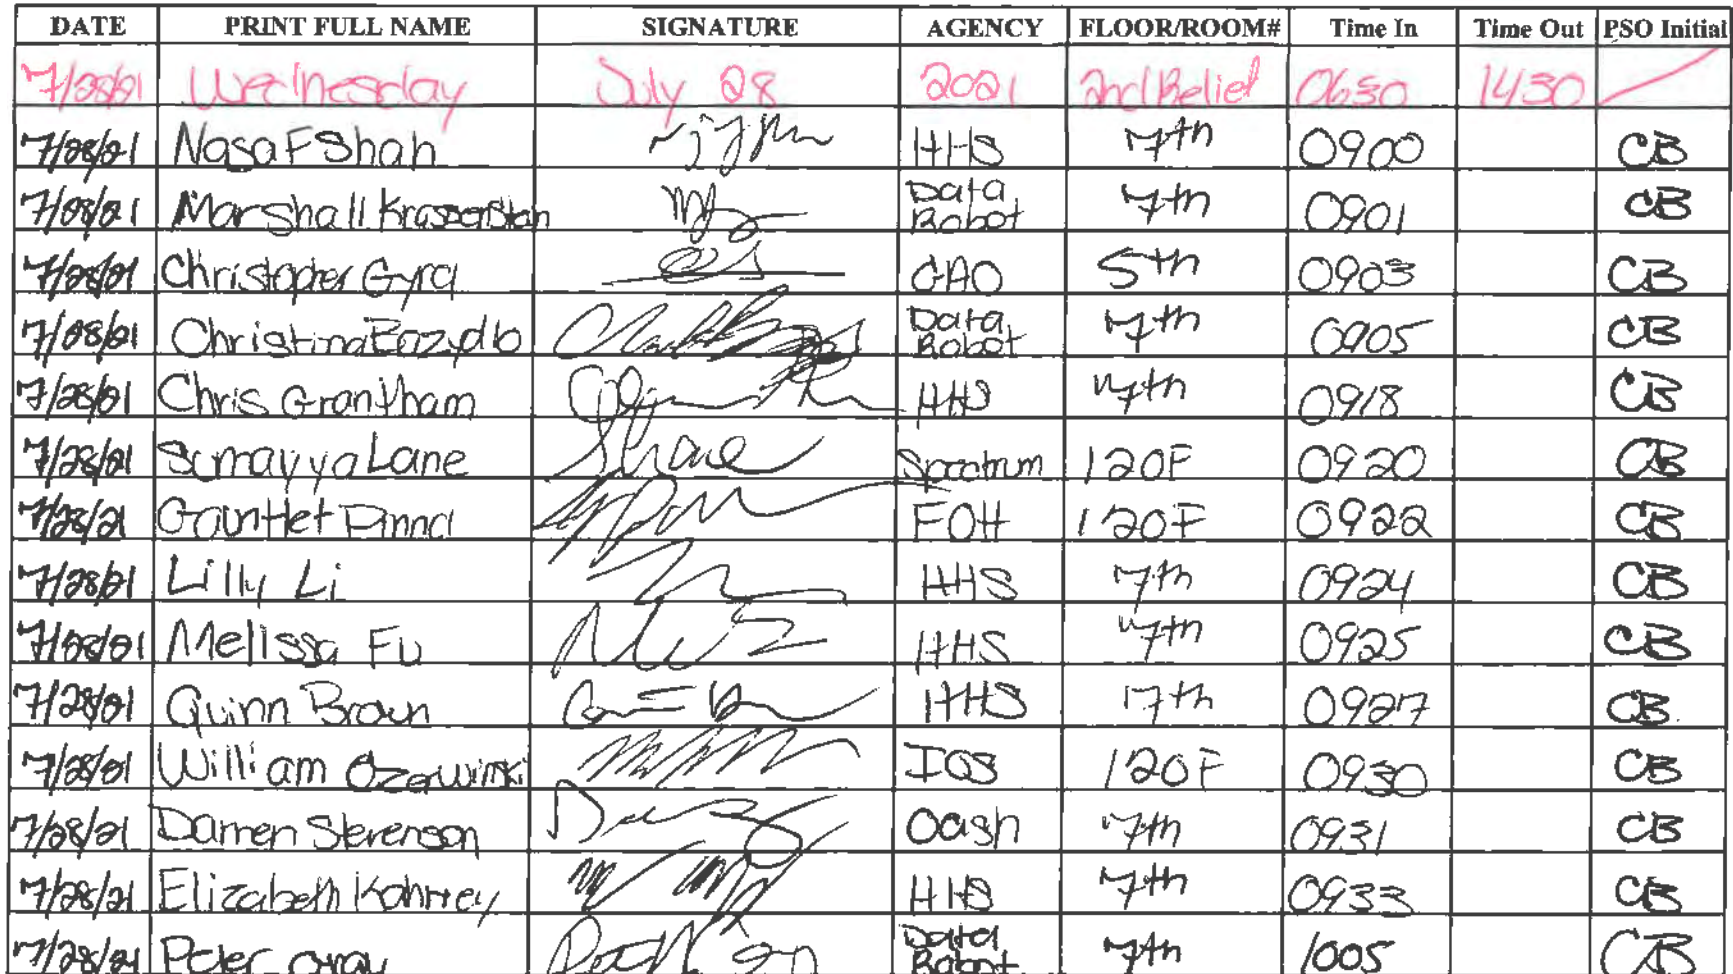 DATE PRINT FULL NAME SIGNATURE AGENCY FLOOR/ROOM# Time In Time Out PSO Initial
7/28/21 Wednesday July 28 2021 2nd Relief 0630 1430
7/28/21 Nasa F Shah HHS 7th 0900 CB
7/28/21 Marshall Data Robot 7th 0901 CB
7/28/21 Christopher Gyra GAO 5th 0903 CB
7/28/21 Christina Data Robot 7th 0905 CB
7/28/21 Chris Grantham HHS 7th 0918 CB
7/28/21 Sumayya Lane Spectrum 120F 0920 CB
7/28/21 Gauntlet FOH 120F 0922 CB
7/28/21 Lilly Li HHS 7th 0924 CB
7/28/21 Melissa Fu HHS 7th 0925 CB
7/28/21 Quinn Braun HHS 7th 0927 CB
7/28/21 William IQS 120F 0930 CB
7/28/21 Darren Stevenson Oash 7th 0931 CB
7/28/21 Elizabeth HHS 7th 0933 CB
7/28/21 Peter Gray Data Robot 7th 1005 CB